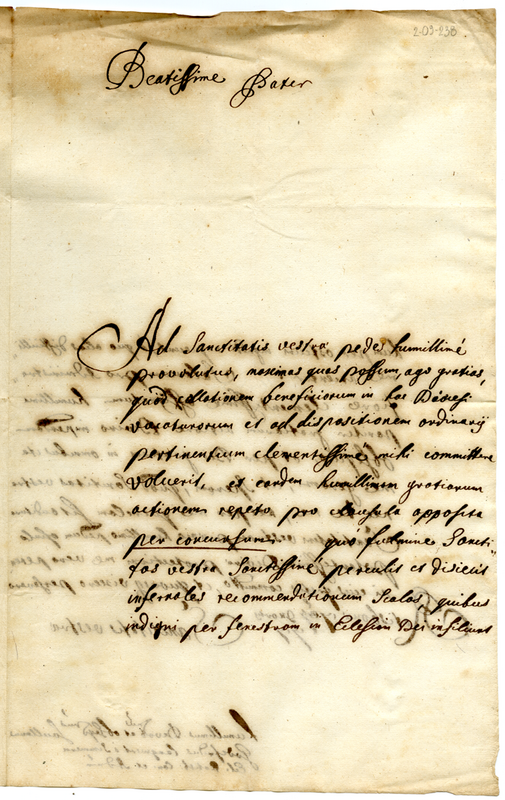 2-03-238
Beatissime Pater
Ad Sanctitatis vestræ pedes humillimè
provolutus, maximas quas possum, ago gratias,
quòd collationem beneficiorum in hac Diœcesi
vacaturorum et ad dispositionem ordinarij
pertinentium clementissimè mihi committere
voluerit, et eandem humillimam gratiarum
actionem repeto pro clausula apposita
per concursum quo fulmine Sancti-
tas vestra Sanctissimè perculit et disiecit
infernales recommenditiorum Scalas, quibus
indigni per fenestram in Eclesiam Dei insiliunt